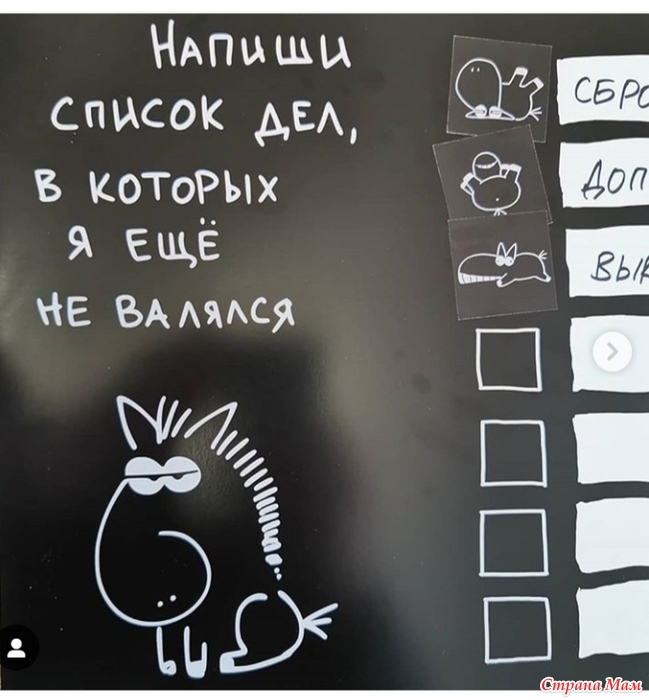 НАПИШИ
СПИСОК ДЕЛ,
В КОТОРЫХ
Я ЕЩЁ
НЕ ВАЛЯЛСЯ
СБРО
ДОП
ВЫК
Страна Мам